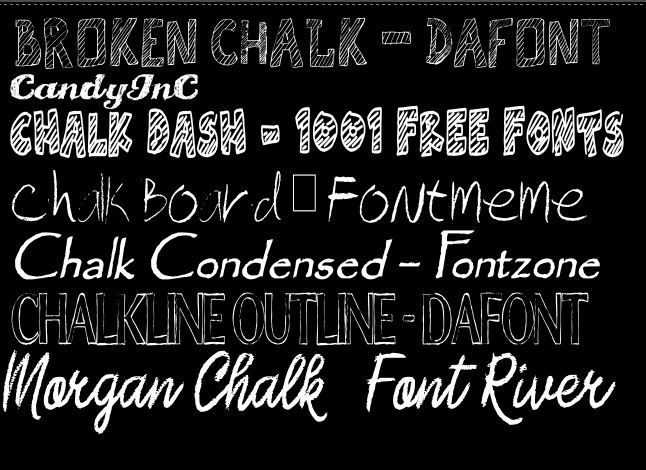 BROKEN CHALK - DAFONT
CandyInC
CHALK DASH - 1001 FREE FONTS
Chalk Board Fontmeme
Chalk Condensed - Fontzone
CHALKLINE OUTLINE - DAFONT
Morgan Chalk Font River